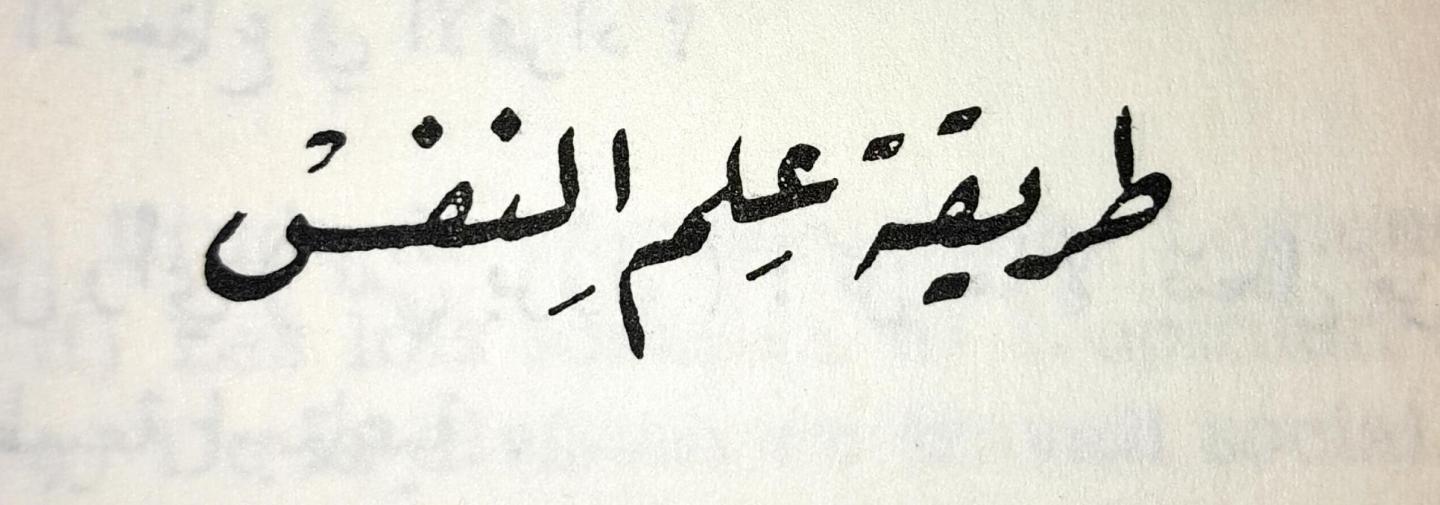 طريقة عِلمِ النفسْ